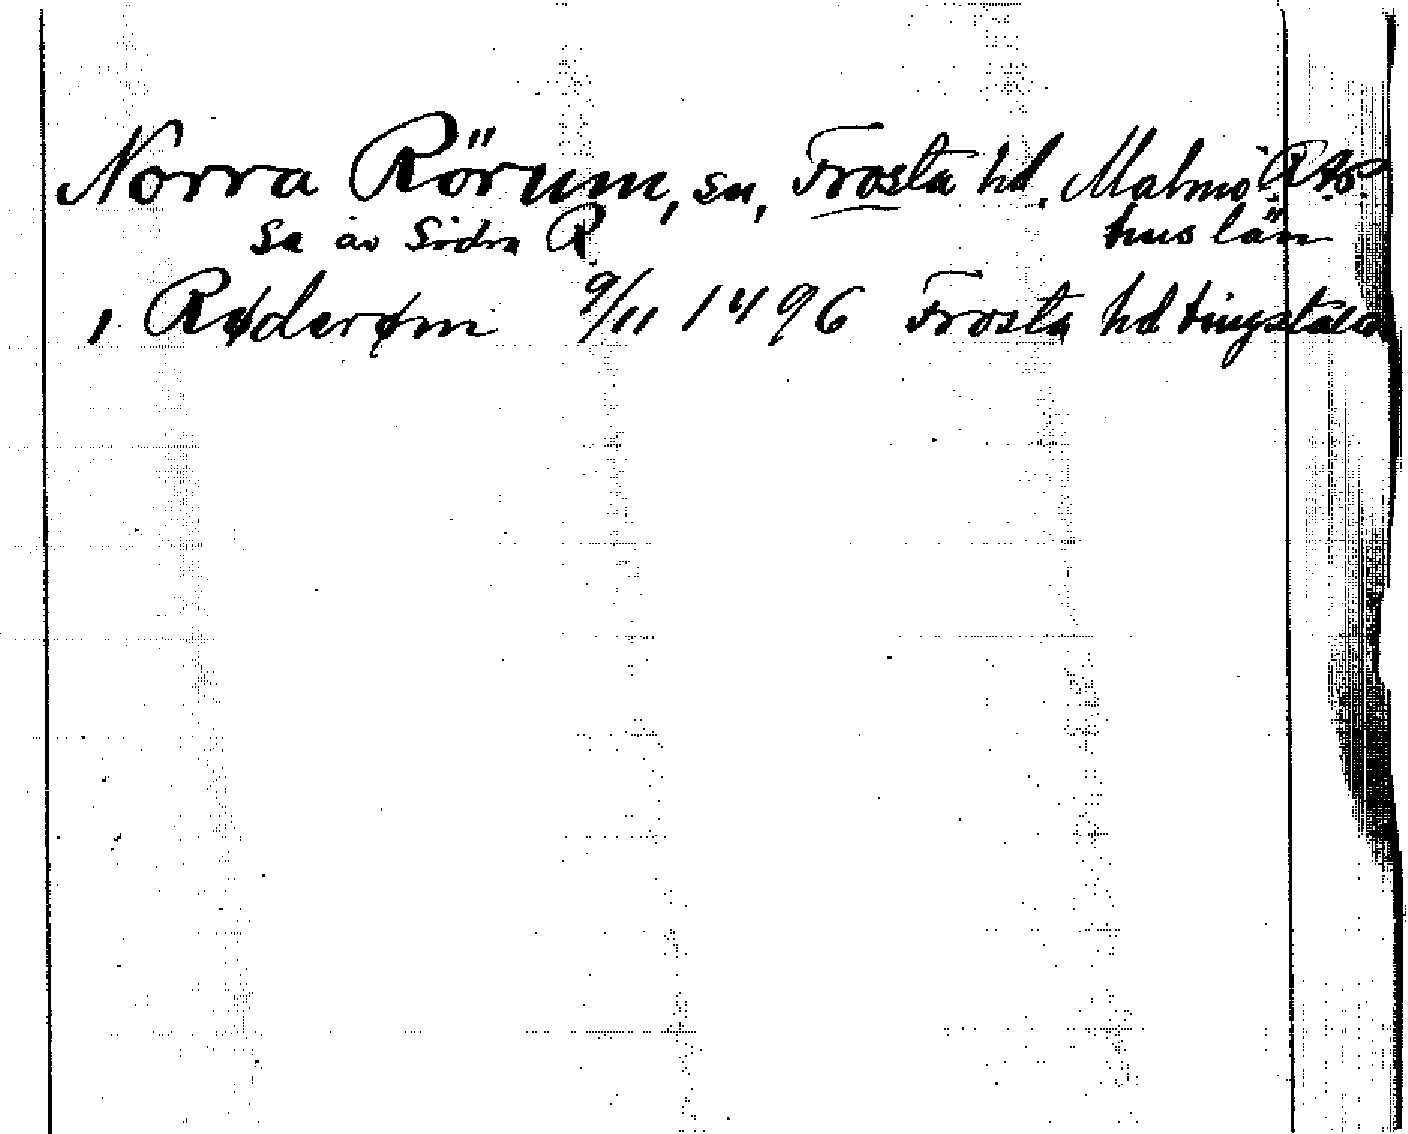 Norra Rörum, sn, Frosta hd. Malmö
Se äv Södra R. hus län
i Røderøm 9/11 1496 Frosta hd tingställe